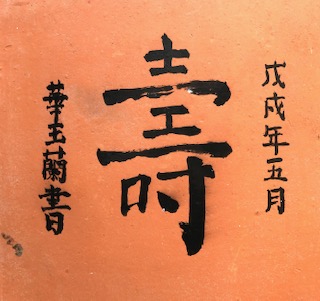 戊戌年五月
壽
華玉蘭書